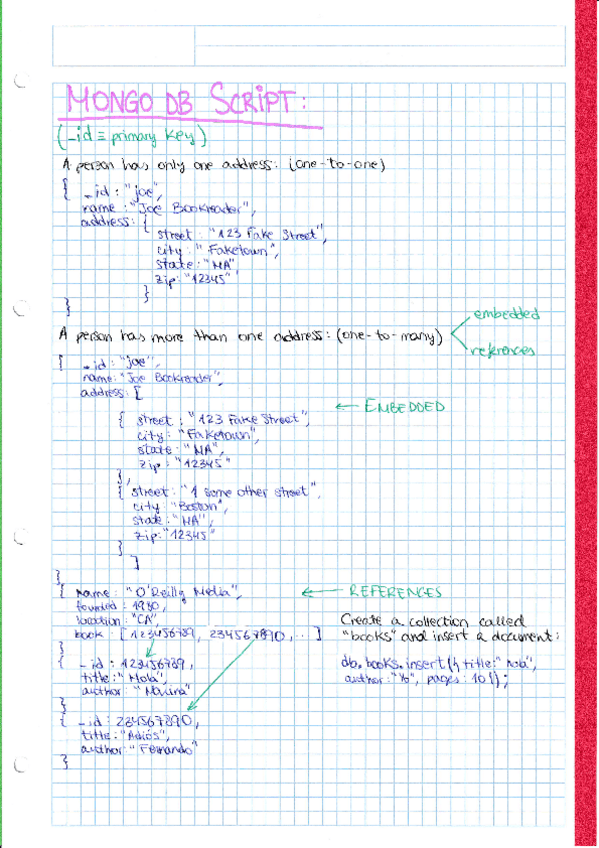 MONGO DB SCRIPT:
(_id ≡ primary key)
A person has only one address: (one-to-one)
{ _id: "joe",
name: "Joe Bookreader",
address: {
street: "123 Fake Street",
city: "Faketown",
state: "MA",
zip: "12345"
}
}
A person has more than one address: (one-to-many)
embedded
references
{ _id: "joe",
name: "Joe Bookreader",
address: [
← EMBEDDED
{ street: "123 Fake Street",
city: "Faketown",
state: "MA",
zip: "12345"
},
{ street: "1 some other street",
city: "Boston",
state: "MA",
zip: "12345"
}
]
}
← REFERENCES
{ name: "O'Reilly Media",
founded: 1980,
location: "CA",
book: [123456789, 234567890, ..]
}
{ _id: 123456789,
title: "Mola",
author: "Marina"
}
{ _id: 234567890,
title: "Adiós",
author: "Fernando"
}
Create a collection called
"books" and insert a document:
db.books.insert({ title: "Mola",
author: "Yo", pages: 10});